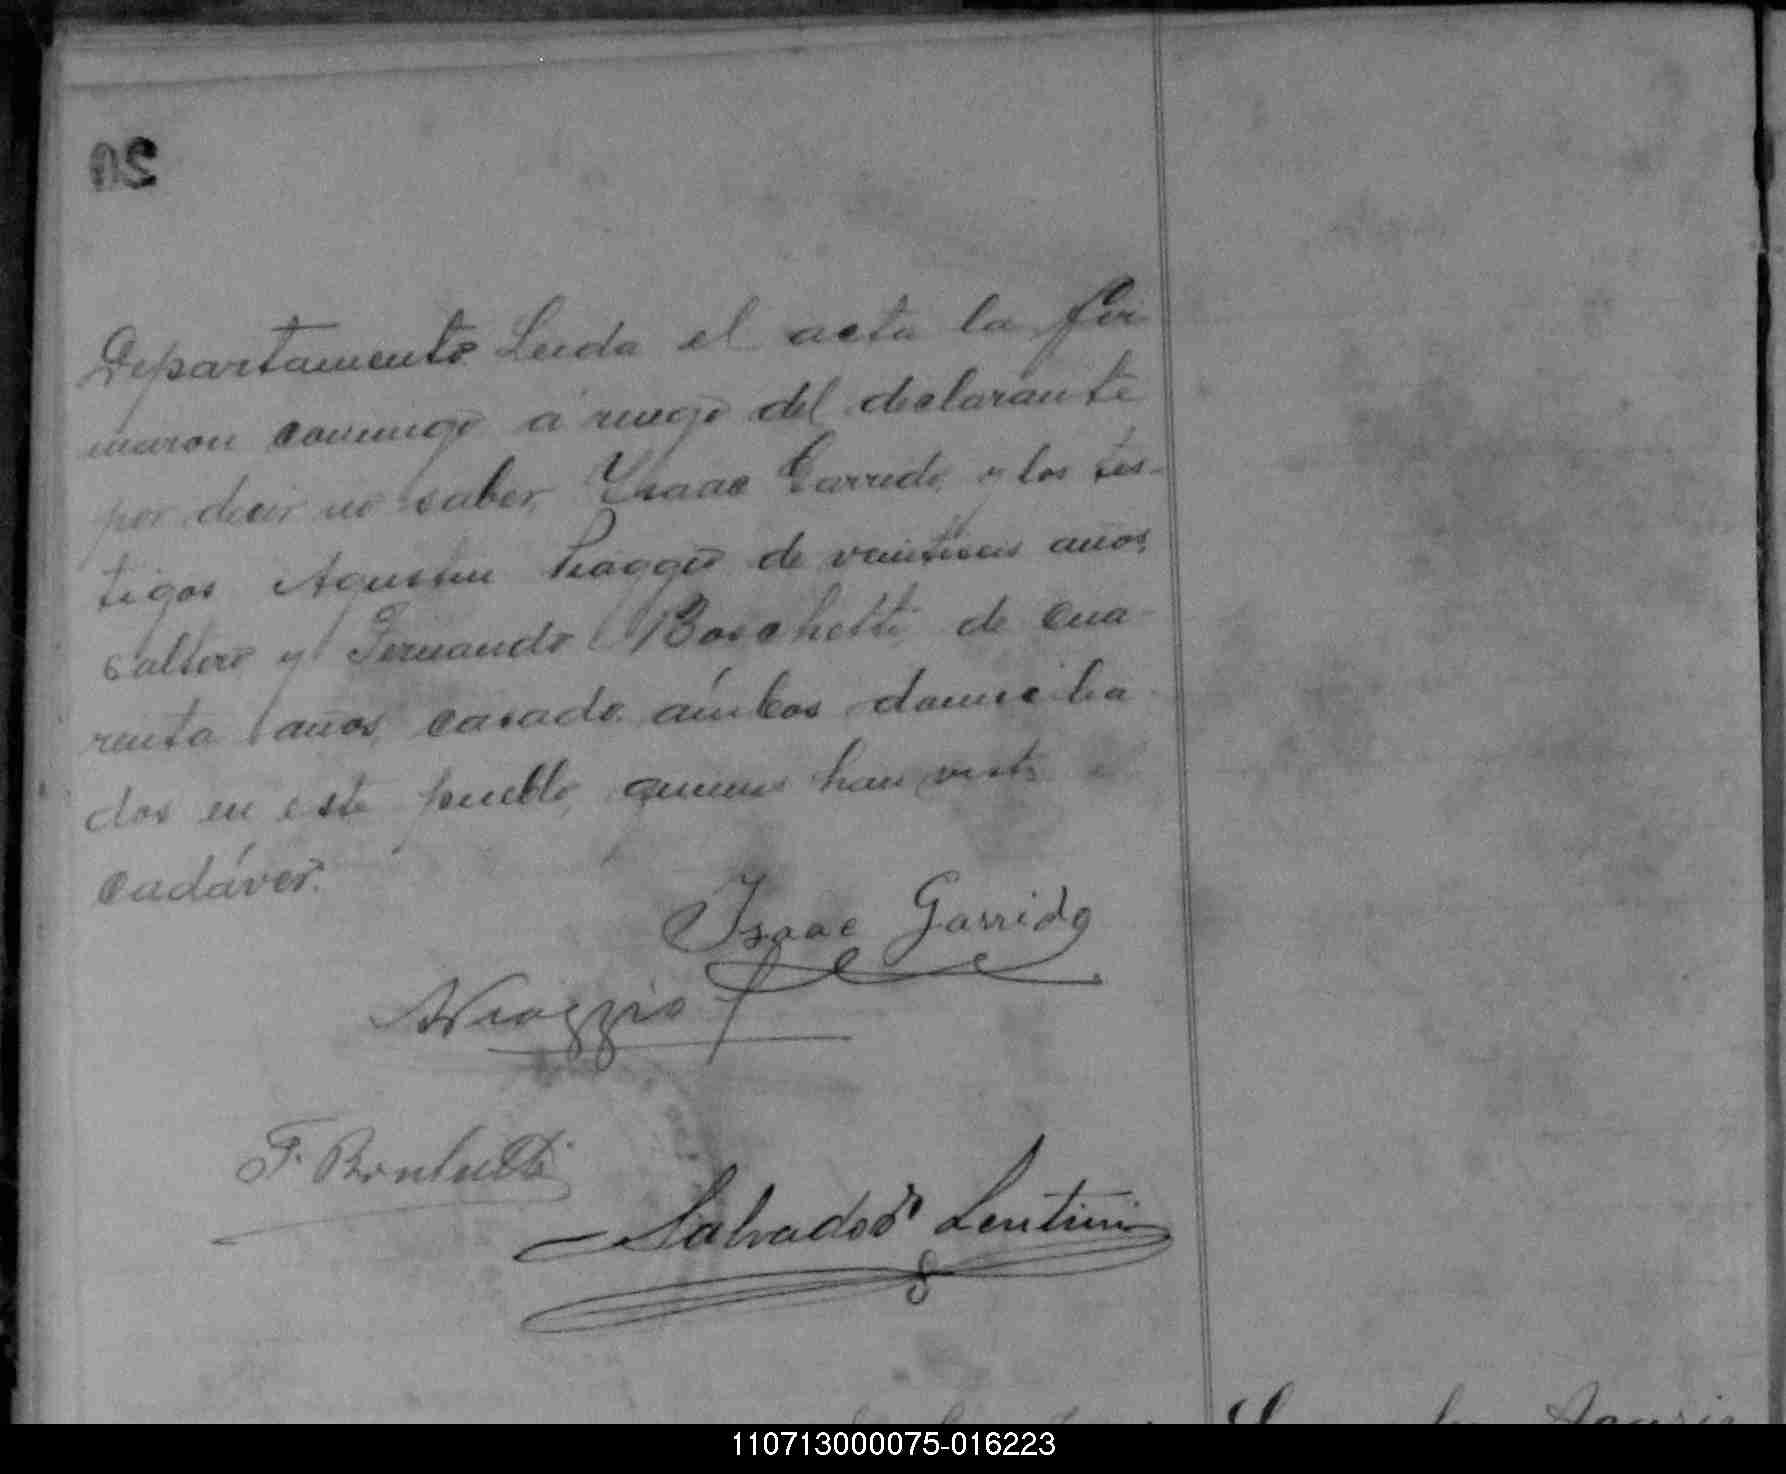 20
Departamento. Leida el acta la fir
maron conmigo a ruego del declarante
por decir no saber, Isaac Garrido, y los tes-
tigos Agustin Piaggio de veintiseis años,
soltero, y Fernando Boschetti, de cua-
renta años, casado, ámbos domicilia
dos en este pueblo, quienes han visto el
cadáver.
Isaac Garrido
APiaggio
F. Boschetti
Salvador Lentini
110713000075-016223